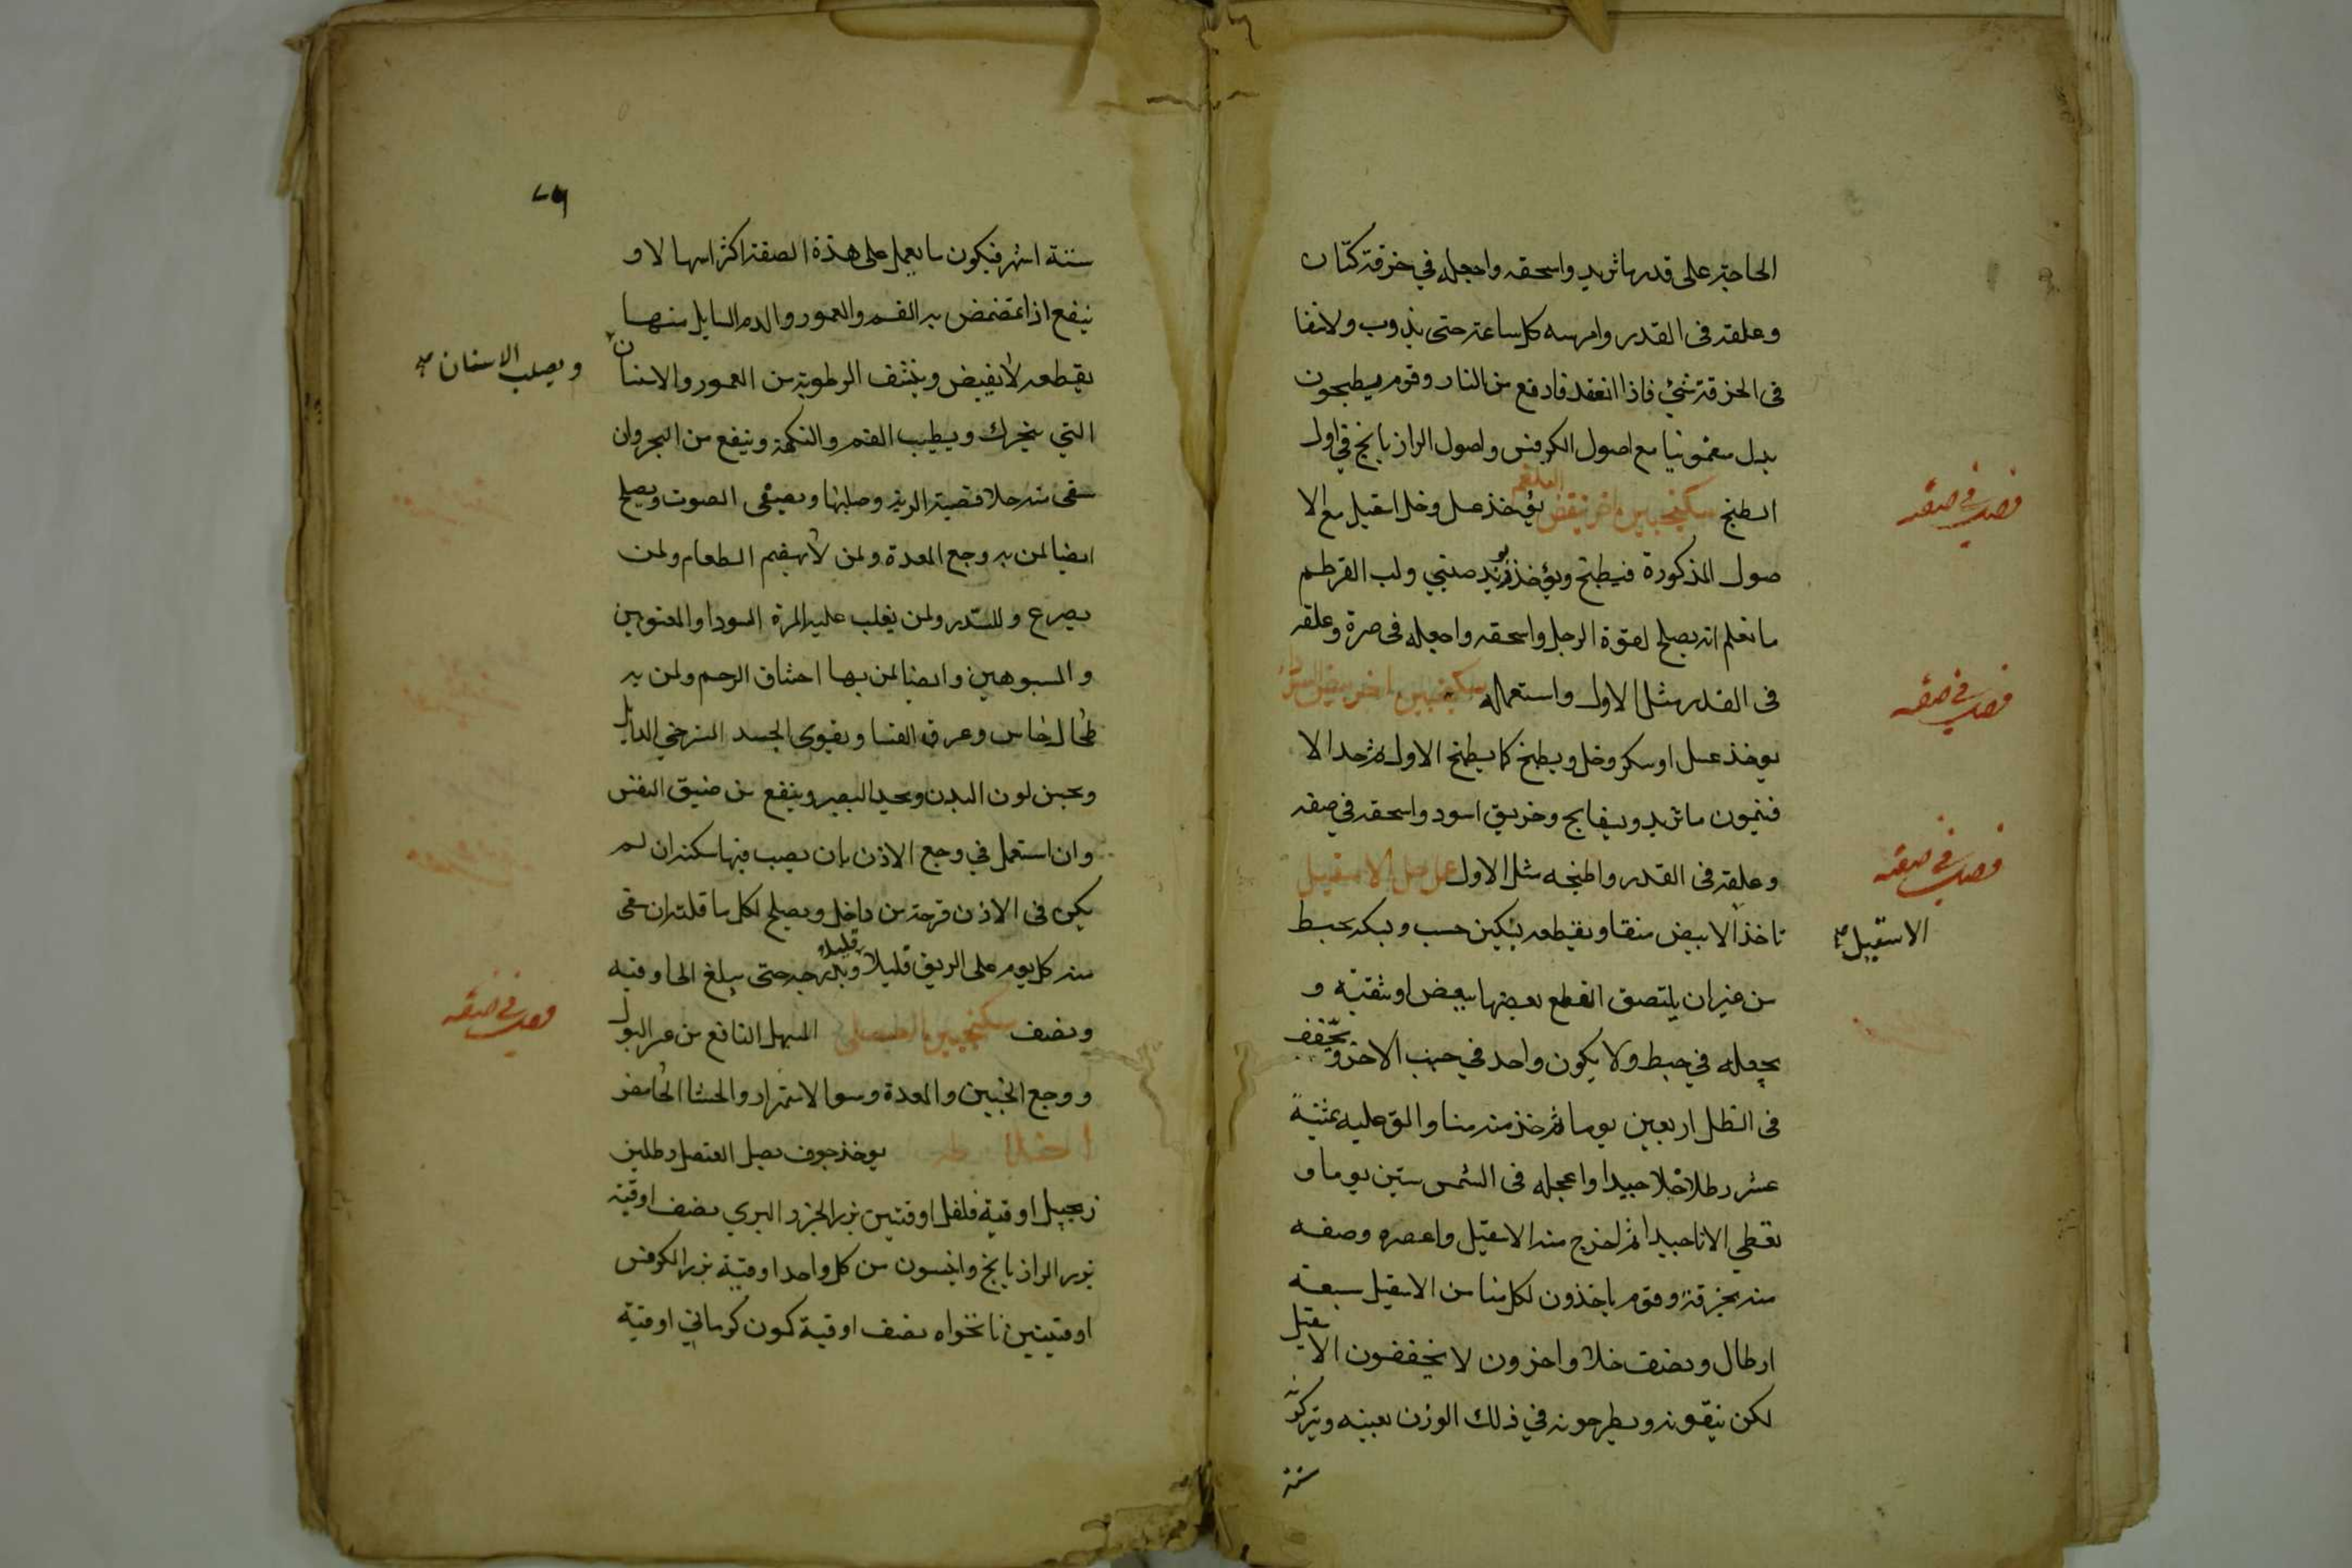 الحاجة على قدر ما تريد واسحقه واجعله في خرقة كتان
وعلقه فى القدر وامرسه كل ساعة حتى يذوب ولا يبقا
فى الخرقة شئ فاذا انعقد فارفع من النار وقوم يطبخون
بدل سقمونيا مع اصول الكرفس واصول الرازيانج في اول
الطبخ سكنجبين اخر ينقض البلغم يؤخذ عسل وخل اسقيل مع الا
فصل في صفة
صول المذكورة فيطبخ ويؤخذ تربد صيني ولب القرطم
ما تعلم انه يصلح لقوة الرجل واسحقه واجعله فى صرة وعلقه
فى القدر مثل الاول واستعماله سكنجبين اخر
فصل في صفة
يوخذ عسل او سكر وخل ويطبخ كما يطبخ الاول ثم خذ الا
فتيمون ما تريد وبسفايج وخربق اسود واسحقه في صفه
وعلقه فى القدر واطبخه مثل الاول عمل خل الاسقيل
فصل في صفة
تاخذ الابيض منقا ويقطعه بسكين خسب وبكه بخيط
الاسقيل صح
من غير ان يلتصق القطع بعضها ببعض او يثقبه و
يجعله في خيط ولا يكون واحد في جنب الاخر ويجفف
فى الظل اربعين يوما ثم خذ منه منا والق عليه ثمنية
عشر رطلا خلا جيدا واعجله فى الشمس ستين يوما و
تغطي الانا جيدا ثم اخرج منه الاسقيل واعصره وصفه
منه بخرقة وقوم ياخذون لكل منا من الاسقيل سبعة
ارطال ونصف خلا واخرون لا يجففون الاسقيل
لكن ينقونه ويطرحونه في ذلك الوزن بعينه ويتركونه
ستة
ستة اشهر فيكون ما يعمل على هذة الصفة اكثر اسهالا و
ينفع اذا تمضمض به الفم والعمور والدم السايل منها
يقطعه لانه يقبض وينشف الرطوبة من العمور والاسنان
ويصلب الاسنان صح
التي يتحرك ويطيب الفم والنكهة وينفع من البخر وان
سقى منه خلا قصبة الرية وصلبها ويصفى الصوت ويصلح
ايضا لمن به وجع المعدة ولمن لا يهضم الطعام ولمن
يصرع وللسدر ولمن يغلب عليه المرة السودا والمعتوهين
والمسبوهين وايضا لمن بها اختناق الرحم ولمن به
طحال جاس وعرق النسا ويقوى الجسد المسترخي الذابل
ويحسن لون البدن ويحد البصر وينفع من ضيق النفس
وان استعمل في وجع الاذن بان يصب فيها سكنه ان لم
يكن فى الاذن قرحة من داخل ويصلح لكل ما قلته ان سقى
منه كل يوم على الريق قليلا قليلا وبدرجه حتى يبلغ الى اوقيه
ونصف سكنجبين العنصلى المسهل النافع من عسر البول
فصل في صفة
ووجع الجنبين والمعدة وسوا الاستمرار والجشا الحامض
اخلاطه يوخذ جوف بصل العنصل رطلين
زنجبيل اوقية فلفل اوقتين بزر الجزر البري نصف اوقية
بزر الرازيانج وانيسون من كل واحد اوقية بزر الكرفس
اوقيتين نانخواه نصف اوقية كمون كرماني اوقية